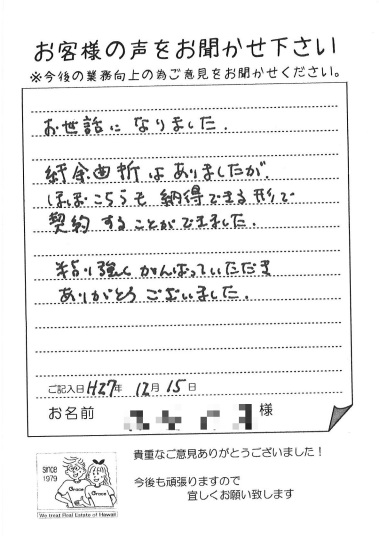 お客様の声をお聞かせ下さい
※今後の業務向上の為ご意見をお聞かせください。
お世話になりました。
紆余曲折はありましたが、
ほぼこちらも納得できる形で
契約することができました。
粘り強くがんばっていただき
ありがとうございました。
ご記入日 H27年 12月 15日
お名前 様
since
1979
Grace
Grace
We treat Real Estate of Hawaii
貴重なご意見ありがとうございました！
今後も頑張りますので
宜しくお願い致します